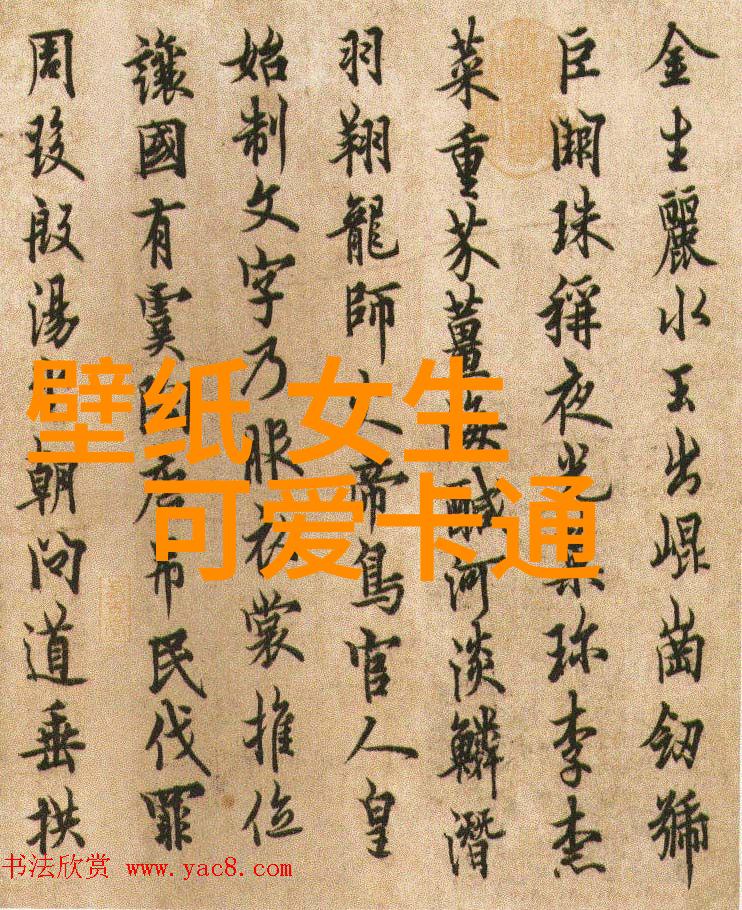 金生麗水玉出崐崗劒號
巨闕珠稱夜光菓珎李柰
菜重芥薑海醎河淡鱗潛
羽翔龍師火帝鳥官人皇
始制文字乃服衣裳推位
讓國有虞陶唐弔民伐罪
周發殷湯朝問道垂拱
壁纸 女生
可爱卡通
书法欣赏 www.yac8.com